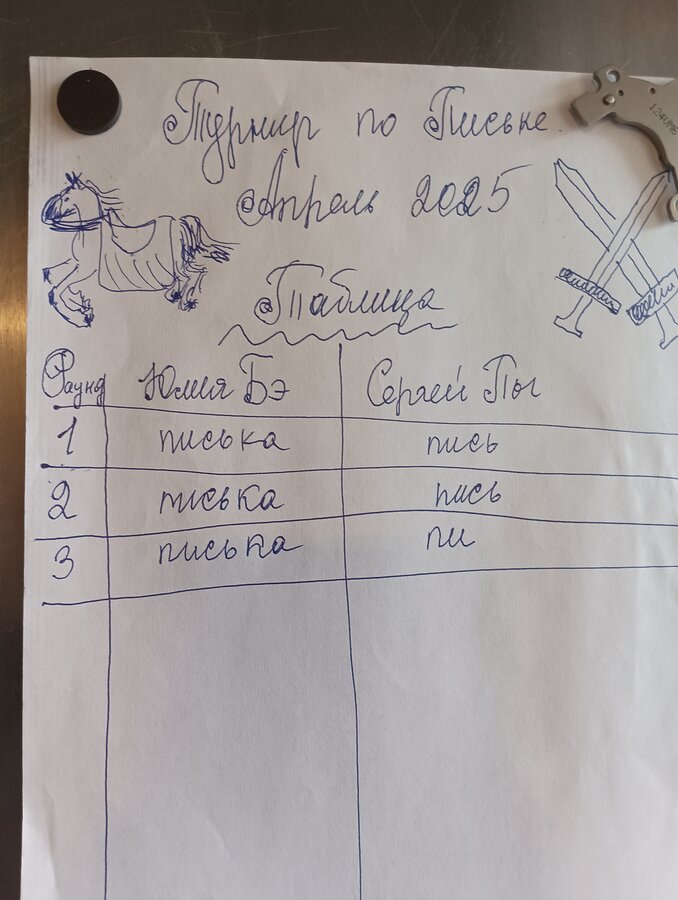 Турнир по Письке.
Апрель 2025
Таблица
Раунд Юлия Бэ Сергей Пы
1 писька пись
2 писька пись
3 писька пи